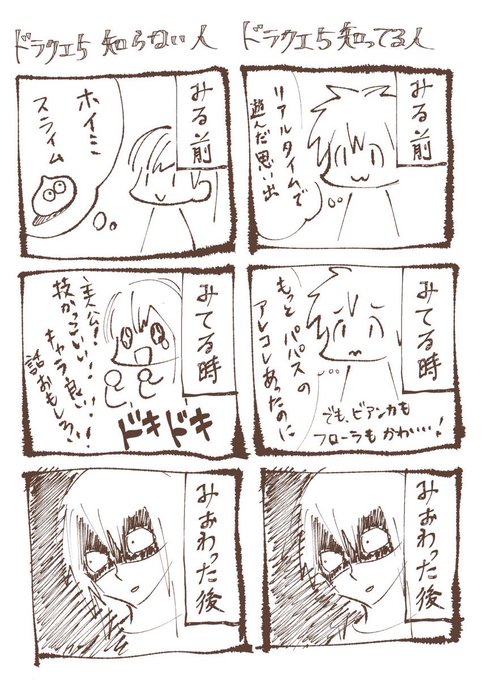 ドラクエ5 知ってる人
みる前
リアルタイムで
遊んだ思い出
みてる時
もっとパパスの
アレコレあったのに
…
でも、ビアンカも
フローラもかわ……!
みおわった後
ドラクエ5 知らない人
みる前
ホイミ
スライム
みてる時
主人公!
技かっこいい!!
キャラ良い!!
話おもしろい
ドキドキ
みおわった後